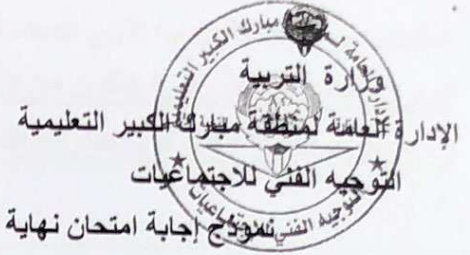 وزارة التربية
الإدارة العامة لمنطقة مبارك الكبير التعليمية
التوجيه الفني للاجتماعيات
نموذج إجابة امتحان نهاية